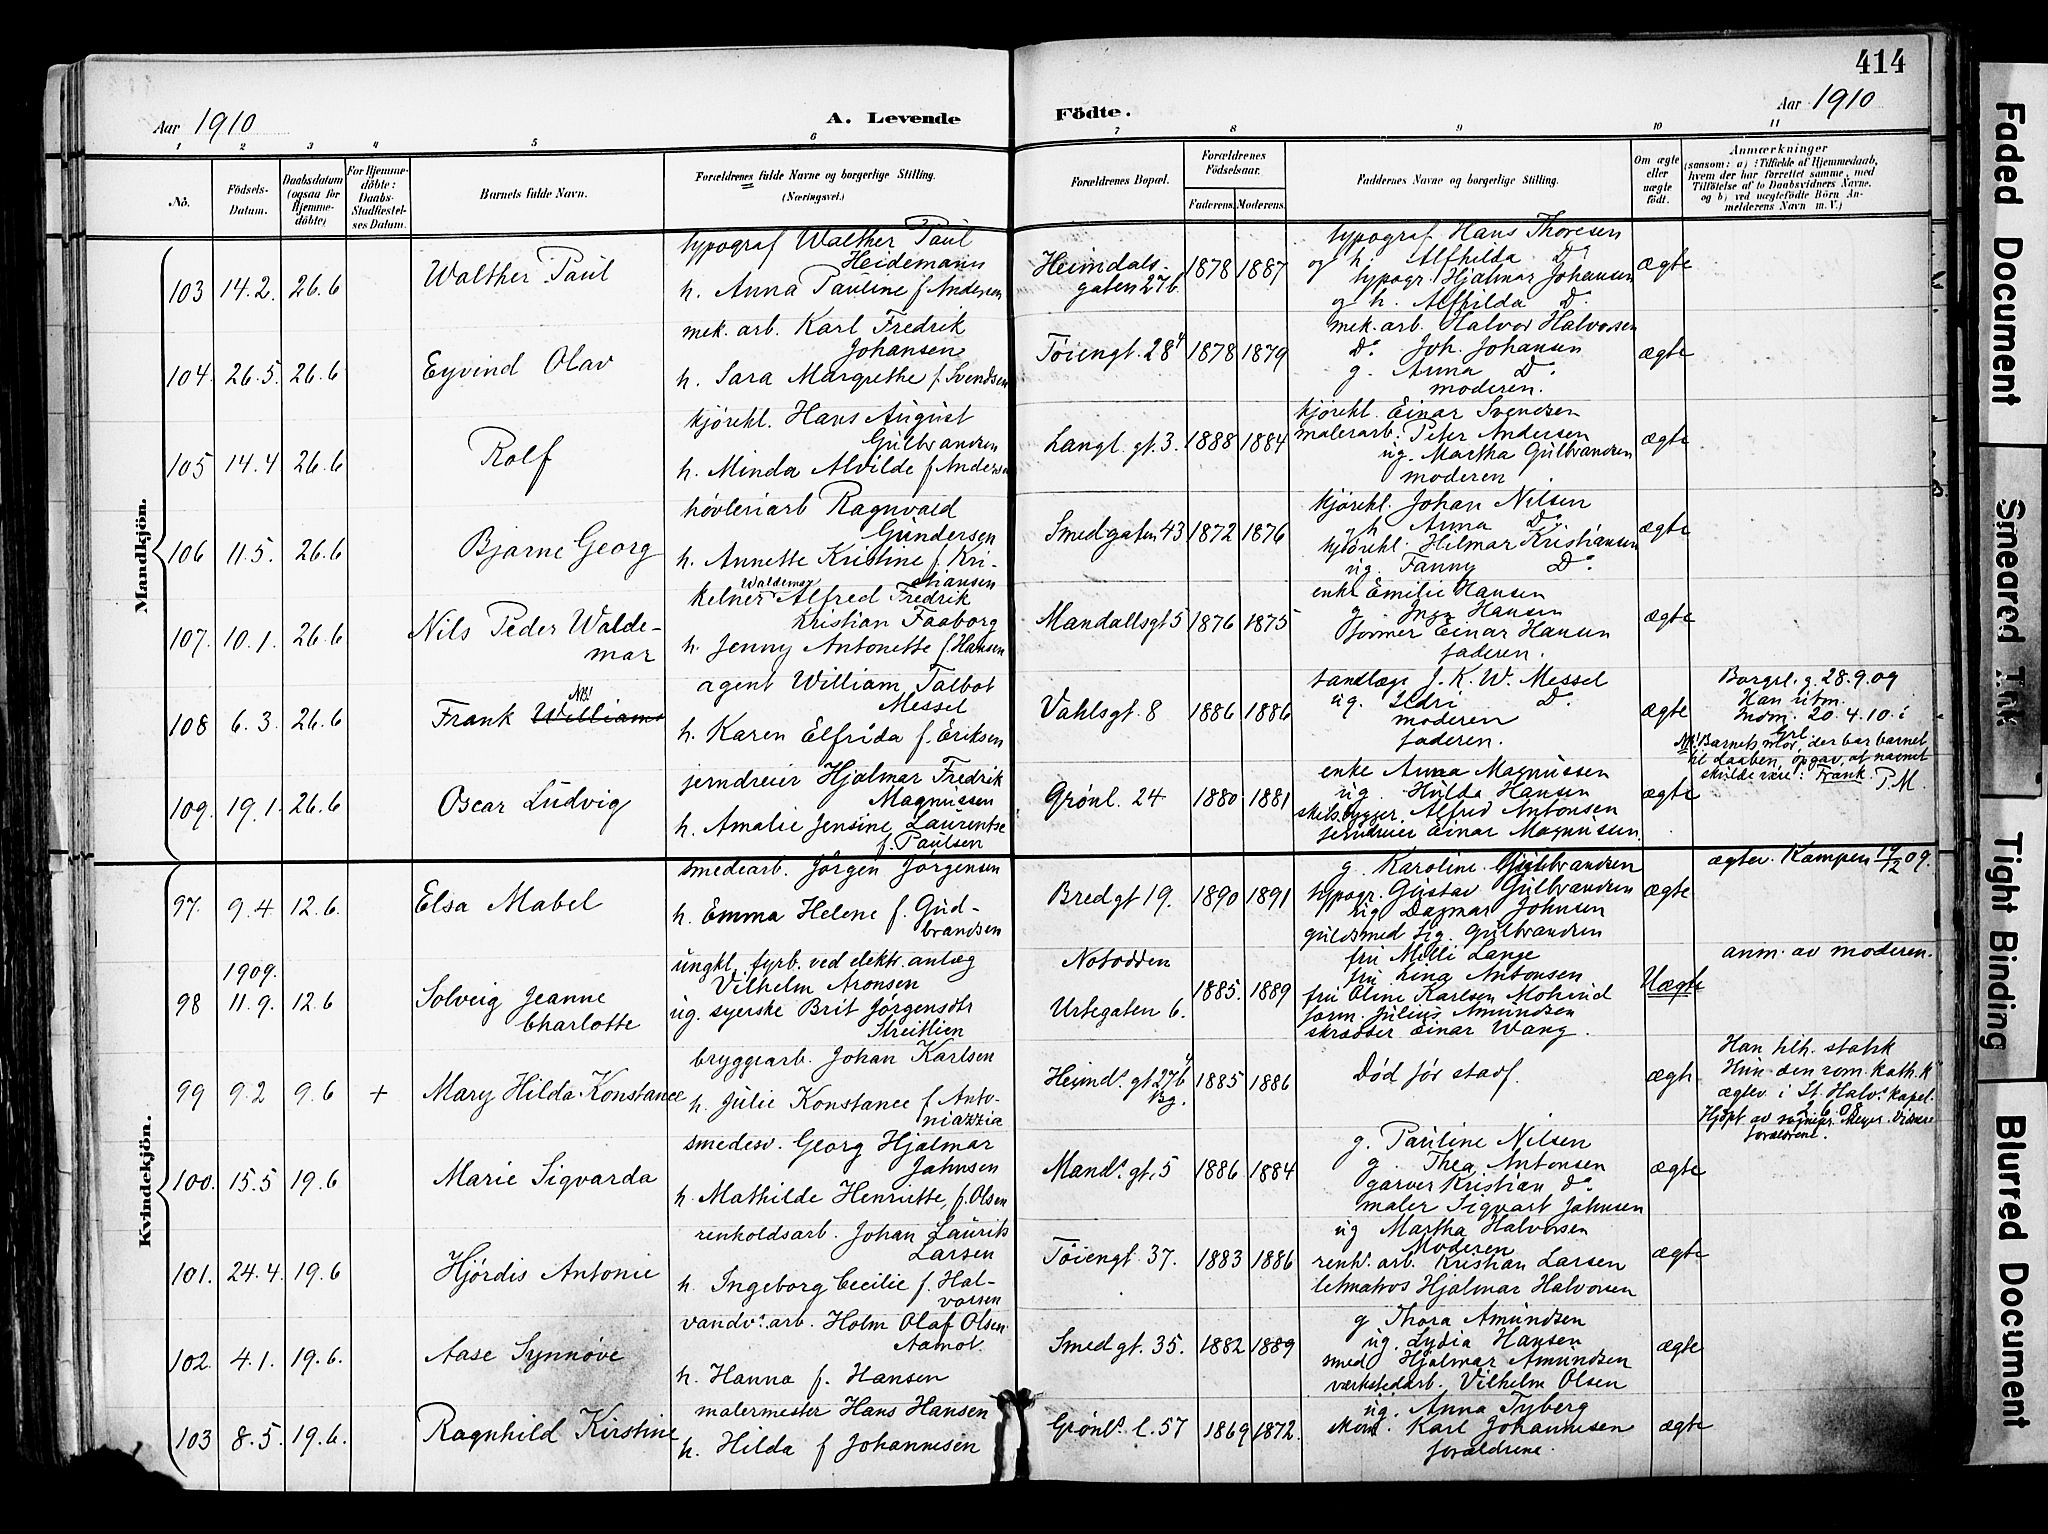 414
Aar 1910
A. Levende
Födte.
Aar 1910
1 2 3 4 5 6 7 8 9 10 11
No.
Födsels-
Datum.
Daabsdatum
(ogsaa for
Hjemme-
döbte)
For Hjemme-
döbte:
Daabs-
Stadfæstel-
ses Datum.
Barnets fulde Navn.
Forældrenes fulde Navne og borgerlige Stilling.
(Næringsvei.)
Forældrenes Bopæl.
Forældrenes
Födselsaar.
Faderens.
Moderens.
Faddernes Navne og borgerlige Stilling.
Om ægte
eller
uægte
födt.
Anmærkninger
(saasom: a) i Tilfælde af Hjemmedaab,
hvem der har forrettet samme, med
Tilföielse af to Daabsvidners Navne,
og b) ved uægtefödte Börn An-
melderens Navn m. V.)
Mandkjön.
103 14.2. 26.6
Walther Paul
typograf Walther Paul
Heidemann
h. Anna Pauline f. Andersen
Heimdals-
gaten 27b
1878 1887
typograf Hans Thoresen
og h. Alfhilda Do
typogr. Hjalmar Johansen
og h. Alfhilda D:
ægte
104. 26.5. 26.6
Eyvind Olav
mek. arb. Karl Fredrik
Johansen
h. Sara Margrethe f. Svendsen
Töiengt. 28
1878 1879
mek. arb. Halvor Halvorsen
Do Joh. Johansen
g. Anna D:
moderen.
ægte
105 14.4 26.6
Rolf
kjörekl. Hans August
Gulbrandsen
h. Minda Alvilde f. Anders
Langl. gt. 3.
1888 1884
kjörekl. Einar Svendsen
malerarb. Peter Andersen
ug. Martha Gulbrandsen
moderen
ægte
106 11.5. 26.6
Bjarne Georg
hövleriarb Ragnvald
Gundersen
h. Annette Kristine f. Kri-
stiansen
Smedgaten 43
1872 1876
kjörekl. Johan Nilsen
g h. Anna Do
kjörekl. Hilmar Kristiansen
ug. Fanny Do
ægte
107. 10.1. 26.6
Nils Peder Walde-
mar
Waldemar
kelner Alfred Fredrik
Kristian Faaborg
h. Jenny Antonette f. Hansen
Mandallsgt 5
1876 1875
enke Emilie Hansen
g. Inga Hansen
former Einar Hansen
faderen.
ægte
108 6.3. 26.6
NB!
Frank William
agent William Talbot
Messel
h. Karen Elfrida f. Eriksen
Vahlsgt. 8
1886 1886
tandlæge J. K. W. Messel
ug. Sidri D:
moderen
faderen.
ægte
Borgrl. g. 28.9.09
Han utm.
Indm. 20.4.10 i
Grl
NB! Barnets mor, der bar barnet
til daaben, opgav, at navnet
skulde være: Frank. P.M.
109. 19.1. 26.6
Oscar Ludvig
jerndreier Hjalmar Fredrik
Magnussen
h. Amalie Jensine Laurentse
f. Paulsen
Grönl. 24
1880 1881
enke Anna Magnussen
ug. Hulda Hansen
skibsbygger. Alfred Antonsen
jerndreier Einar Magnussen.
ægte
Kvindekjön.
97. 9.4 12.6.
Elsa Mabel
smedearb. Jörgen Jörgensen
h. Emma Helene f. Gud-
brandsen
Bredgt 19.
1890 1891
g. Karoline Gulbrandsen
typogr. Gustav Gulbrandsen
ug Dagmar Johnsen
guldsmed Sig. Gulbrandsen
ægte
ægtev. Kampen 19/12 09.
1909.
98 11.9. 12.6
Solveig Jeanne
Charlotte
ungkl. fyrb. ved elektr. anlæg
Vilhelm Aronsen
ug. syerske Brit Jörgensdtr
Streitlien
Notodden
Urtegaten 6.
1885. 1889
fru Milli Lange
fru Lina Antonsen
fru Oline Karlsen Mohrud
form. Julius Amundsen
skrædder Einar Wang.
Uægte
anm. av moderen.
99 9.2 9.6 +
Mary Hilda Konstance
bryggearb. Johan Karlsen
h. Julie Konstance f. Anto-
niazzia
Heimds. gt 27b
Bg.
1885 1886
Död för stadf.
ægte
Han hlh. statsk
Hun "den rom. kath. k"
ægtev i St. Halvs. kapel.
2.6.08
Hjdpt av sognepr. Meyer. Vidner
forældrene.
100. 15.5 19.6
Marie Sigvarda
smedesv. Georg Hjalmar
Jahnsen
h. Mathilde Henriette, f. Olsen
Mands. gt. 5
1886 1884
g. Pauline Nilsen
g. Thea Antonsen
garver Kristian Do
maler Sigvart Jahnsen
ægte
101. 24.4. 19.6
Hjördis Antonie
renholdsarb. Johan Laurits
Larsen
h. Ingeborg Cecilie f. Hal-
vorsen
Töiengt. 37.
1883 1886
ug Martha Halvorsen
Moderen
renh. arb. Kristian Larsen
letmatros Hjalmar Halvorsen
ægte
102. 4.1. 19.6.
Aase Synnöve
vandvs. arb. Holm Olaf Olsen
Aamot
h. Hanna f. Hansen
Smedgt. 35.
1882 1889
g Thora Amundsen
ug. Lydia Hansen
smed Hjalmar Amundsen
værkstedarb. Vilhelm Olsen
ægte
103 8.5. 19.6.
Ragnhild Kirstine
malermester Hans Hansen
h. Hilda f Johannesen
Grönls. l. 57
1869 1872.
ug. Anna Tyberg
Karl Johannesen
forældrene.
ægte
Faded Document
Smeared Ink
Tight Binding
Blurred Document